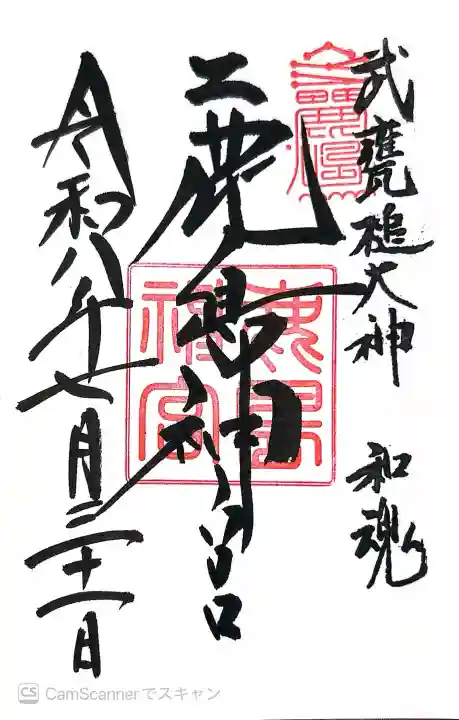 武甕槌大神 和魂
鹿島神宮
鹿島神宮
令和八年七月三十一日
CS CamScannerでスキャン